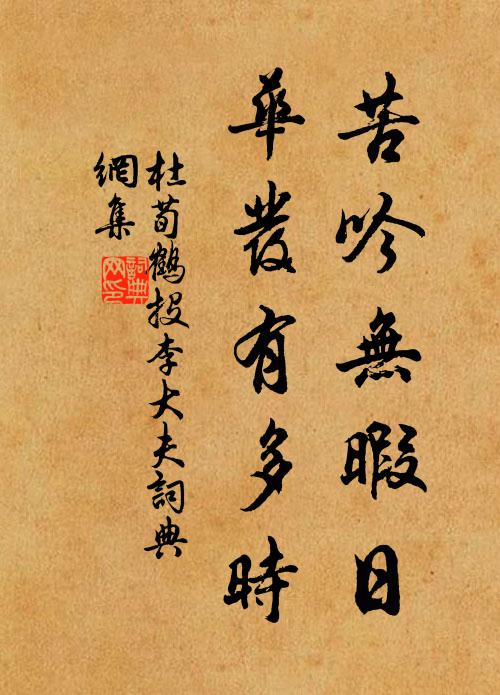 苦吟無暇日
華發有多時
杜荀鶴投李大夫詞典
網集
詞典
网印